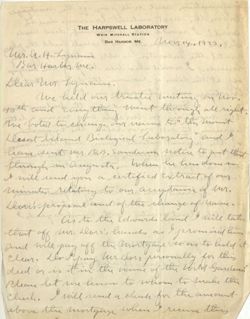 THE HARPSWELL LABORATORY
WEIR MITCHELL STATION
BAR HARBOR, ME.
Nov. 14, 1922.
Mr. A. H. Lynam
Bar Harbor Me.
Dear Mr. Lynam:
We held our Trustee meeting on Nov
10th and everything went through all right.
We voted to change our name to the Mount
Desert Island Biological Laboratory and I
have sent our Mr. notice to put this
When he has done so
I will send you a certified extract of our
minutes relating to our acceptance of Mr.
Dorr's proposal and of the change of name.
As to the Edwards land I will take
that off Mr. Dorr's hands as I promised him
and will pay off the mortgage so as to hold it
clear. Do I pay Mr. Dorr personally for this
deed or is it in the name of the Wild Gardens
please let me know to whom to make the
check. I will send a check for the amount
above the mortgage when I receive this